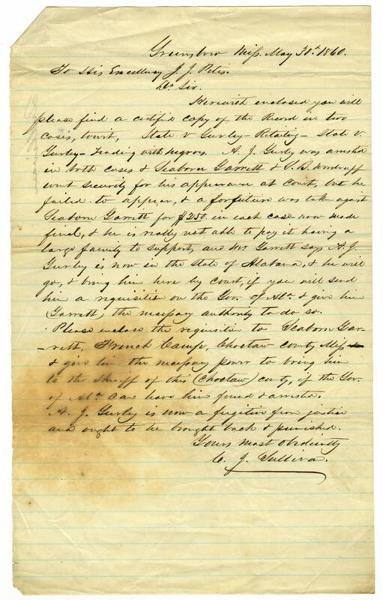 Greensboro Miss, May 30th 1860.
To His Excellency J. J. Pettus.
Dr Sir.
Herewith enclosed you will
please find a certified copy of the Record in two
cases, towit, State v Gurley - Retailing - State v
Gurley - Trading with negroes. A. J. Gurly was arrested
in both cases & Seaborn Garrett &
went security for his appearance at Court, but he
failed to appear, & a forfeiture was take against
Seaborn Garrett for $250. in each case now made
final, & he is really not able to pay it, having a
large family to support, and Mr Garrett says A. J.
Gurley is now in the State of Alabama, & he will
go, & bring him here by court, if you will send
him a requisition on the Gov. of Ala. & give him
Garrett, the necessary authority to do so.
Please enclose the requisition to Seaborn Gar-
rett, French Camps, Choctaw County Miss
& give him the necessary power to bring him
to the Sheriff of this (Choctaw) county, if the Gov.
of Ala. can have him found & arrested.
A. J. Gurly is now a fugitive from justice
and ought to be brought back & punished.
Yours most obediently
C. J. Sullivan.